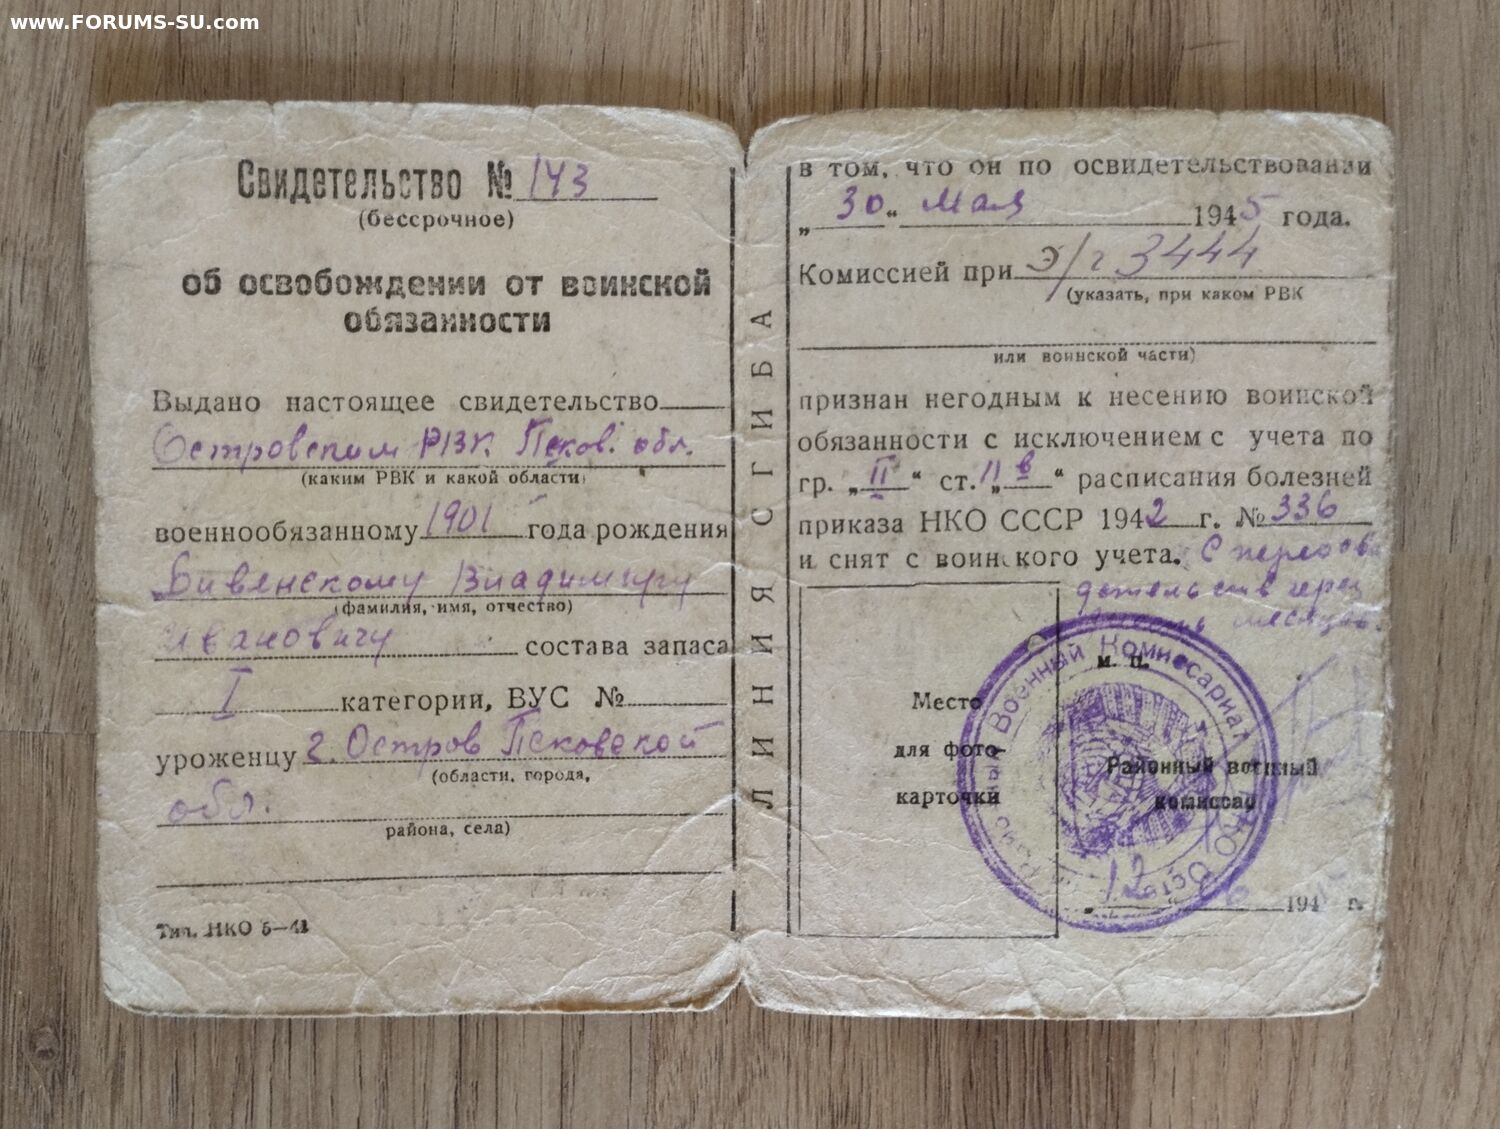 www.FORUMS-SU.com
Свидетельство № 143
(бессрочное)
об освобождении от воинской
обязанности
Выдано настоящее свидетельство
Островским РВК Псков. обл.
(каким РВК и какой области)
военнообязанному 1901 года рождения
Владимиру
(фамилия, имя, отчество)
Ивановичу состава запаса
I категории, ВУС №
уроженцу г. Остров Псковской
(области, города,
обл.
района, села)
Тип. НКО 5—41
ЛИНИЯ СГИБА
в том, что он по освидетельствовании
„30“ мая 1945 года.
Комиссией при Э/г 3444
(указать, при каком РВК
или воинской части)
признан негодным к несению воинской
обязанности с исключением с учета по
гр. „II“ ст. 11 „в“ расписания болезней
приказа НКО СССР 1942 г. № 336
и снят с воинского учета. С переосви
детельств через
месяцев.
м. п.
Место
для фото-
карточки
Районный военный
комиссар
Военный Комиссариат
НКО
„12“ 194 г.